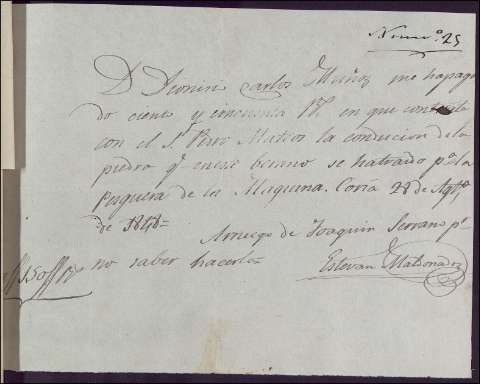 Num.º 25
D. Dionisio Carlos Muñoz me ha paga
do ciento y cincuenta Rs. en que contraté
con el Sr. Pero Mateos la conducion dela
piedra qe. en ese berano se ha traido pa. la
Pesquera de la Maquina. Coria 28 de Agto.
de 1848=
Arruego de Joaquin Serrano pr.
no saber hacerlo=
Estevan Maldonado
150 Rs